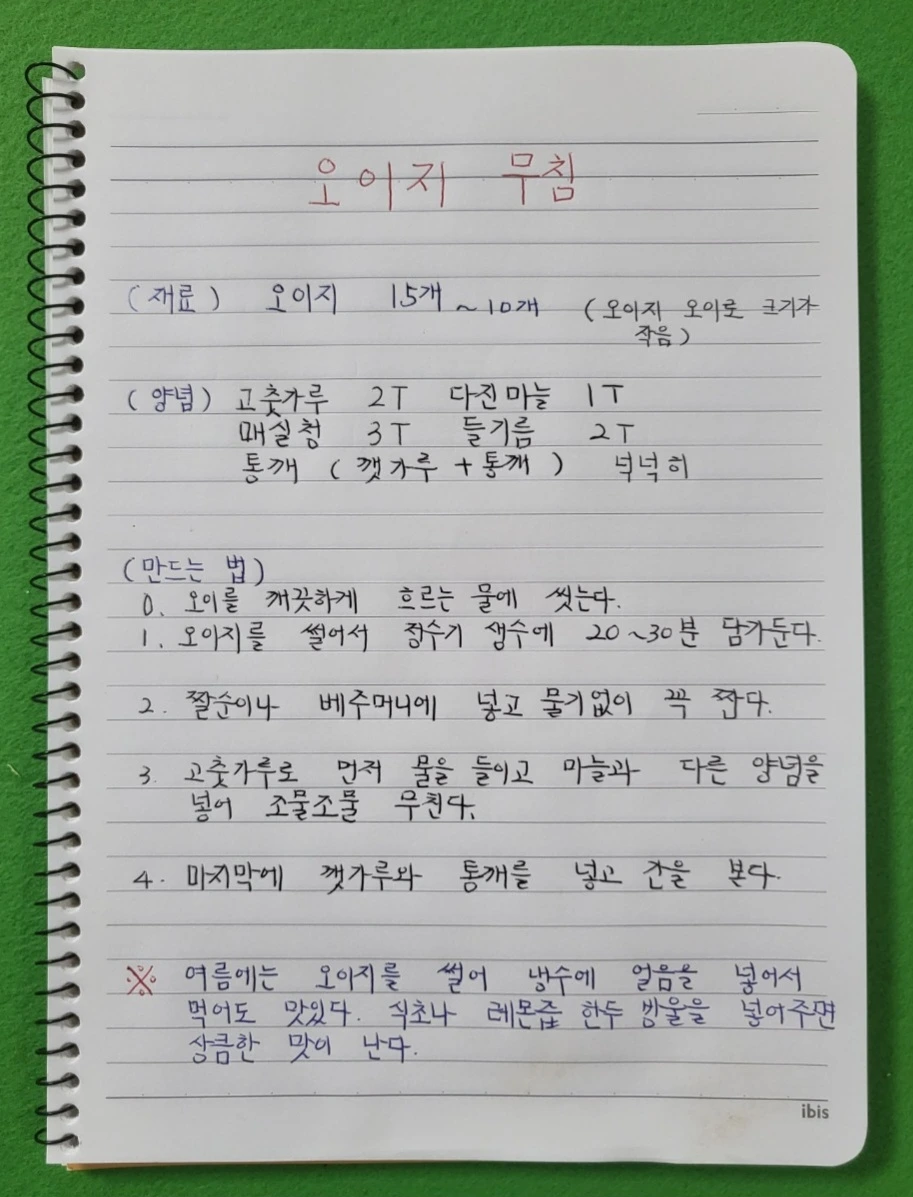 오이지 무침
(재료) 오이지 15개 ~10개 (오이지 오이로 크기가
작음)
(양념) 고춧가루 2T 다진마늘 1T
매실청 3T 들기름 2T
통깨 (깻가루 + 통깨) 넉넉히
(만드는 법)
0. 오이를 깨끗하게 흐르는 물에 씻는다.
1. 오이지를 썰어서 정수기 생수에 20~30분 담가둔다.
2. 짤순이나 베주머니에 넣고 물기없이 꼭 짠다.
3. 고춧가루로 먼저 물을 들이고 마늘과 다른 양념을
넣어 조물조물 무친다.
4. 마지막에 깻가루와 통깨를 넣고 간을 본다.
※ 여름에는 오이지를 썰어 냉수에 얼음을 넣어서
먹어도 맛있다. 식초나 레몬즙 한두 방울을 넣어주면
상큼한 맛이 난다.
ibis